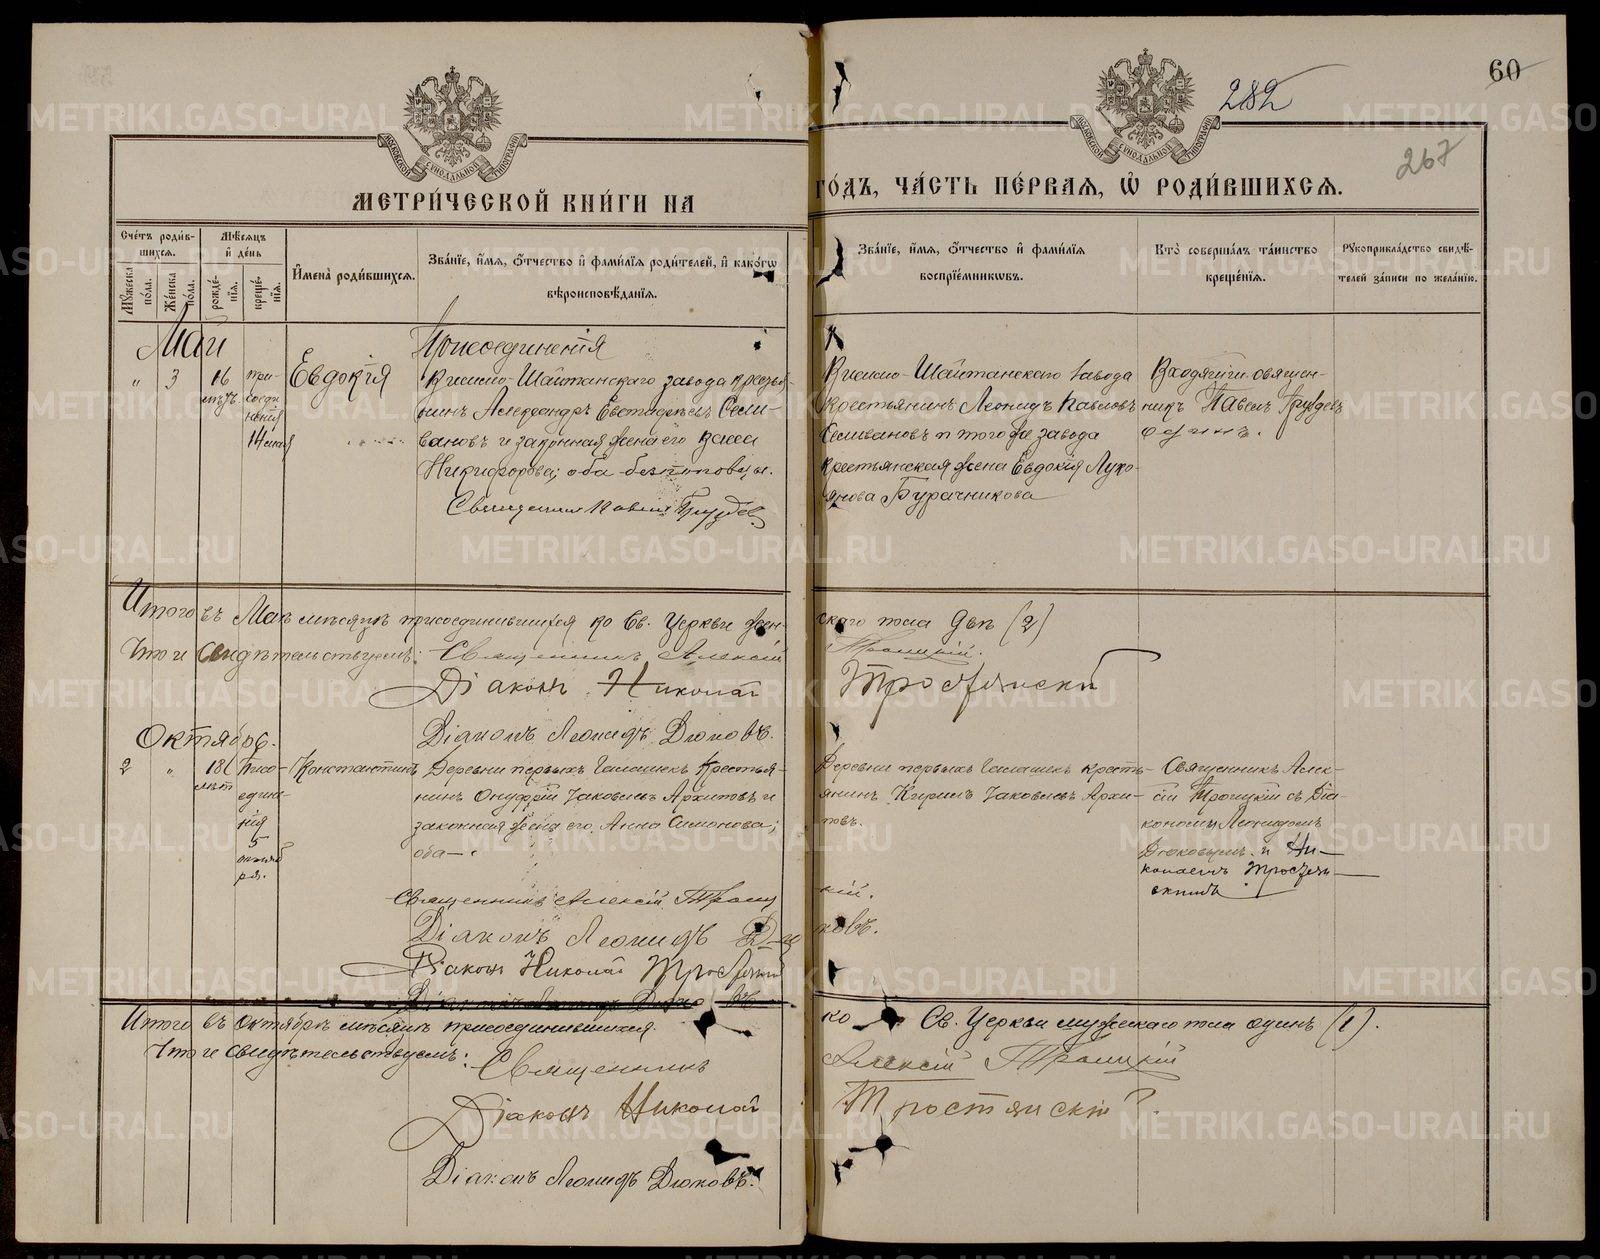 60
282
267
МЕТРИ́ЧЕСКОЙ КНИ́ГИ НА
ГО́ДЪ, ЧА́СТЬ ПЕ́РВАѦ, Ѽ РОДИ́ВШИХСѦ.
Сче́тъ роди́в-
шихсѧ.
Мꙋ́жеска по́ла.
Же́нска по́ла.
Мѣ́сѧцъ и҆ де́нь
рожде́-
нїѧ.
креще́-
нїѧ.
И҆мена̀ роди́вшихсѧ.
Зва́нїе, и҆́мѧ, ѻ҆́тчество и҆ фами́лїѧ роди́телей, и҆ како́гѡ
вѣроисповѣ́данїѧ.
Зва́нїе, и҆́мѧ, ѻ҆́тчество и҆ фами́лїѧ
воспрїе́мникѡвъ.
Кто̀ соверша́лъ та́инство
креще́нїѧ.
Рꙋкоприкла́дство свидѣ́-
телей за́писи по жела́нїю.
Май
Присоединенія
" 3 16 лѣтъ
при-
соеди
ненія
14 мая
Евдокія
Висимо-Шайтанскаго завода кресть-
нинъ Александръ Евстафьевъ Сели-
вановъ и законная жена его Васса
Никифорова; оба безпоповцы.
Священникъ Павелъ Груздев
Висимо-Шайтанскаго завода
крестьянинъ Леонидъ Павловъ
Селивановъ и того же завода
крестьянская жена Евдокія Луко-
янова Бурачникова
Входящій священ-
никъ Павелъ Груздевъ
одинъ.
Итого въ Маѣ мѣсяцѣ присоединившихся ко Св. Церкви жен-
скаго пола двѣ (2)
Что и свидѣтельствуемъ: Священникъ Алексій
Троицкій.
Діаконъ Николай
Тростянскій
Діаконъ Леонидъ Дюковъ.
Октябрь.
2 " 18 лѣт
Присо-
едине-
нія
5
октяб
ря.
Константинъ
Деревни первыхъ Галашекъ крестья-
нинъ Онуфрій Іаковлевъ Архиповъ и
законная жена его Анна Симонова;
оба
Деревни первыхъ Галашекъ кресть-
янинъ Кирилъ Іаковлевъ Архи-
повъ.
Священникъ Алек-
сій Троицкій съ Діа-
кономъ Леонидомъ
Дюковымъ и Ни-
колаемъ Тростян-
скимъ
Священникъ Алексій Троиц
кій.
Діаконъ Леонидъ Дю
ковъ.
Діаконъ Николай Тростянскій
Діаконъ Леонидъ Дюковъ
Итого въ октябрѣ мѣсяцѣ присоединившихся
ко Св. Церкви мужескаго пола одинъ (1).
Что и свидѣтельствуемъ: Священникъ
Алексій Троицкій
Діаконъ Николай
Тростянскій
Діаконъ Леонидъ Дюковъ.
METRIKI.GASO-URAL.RU